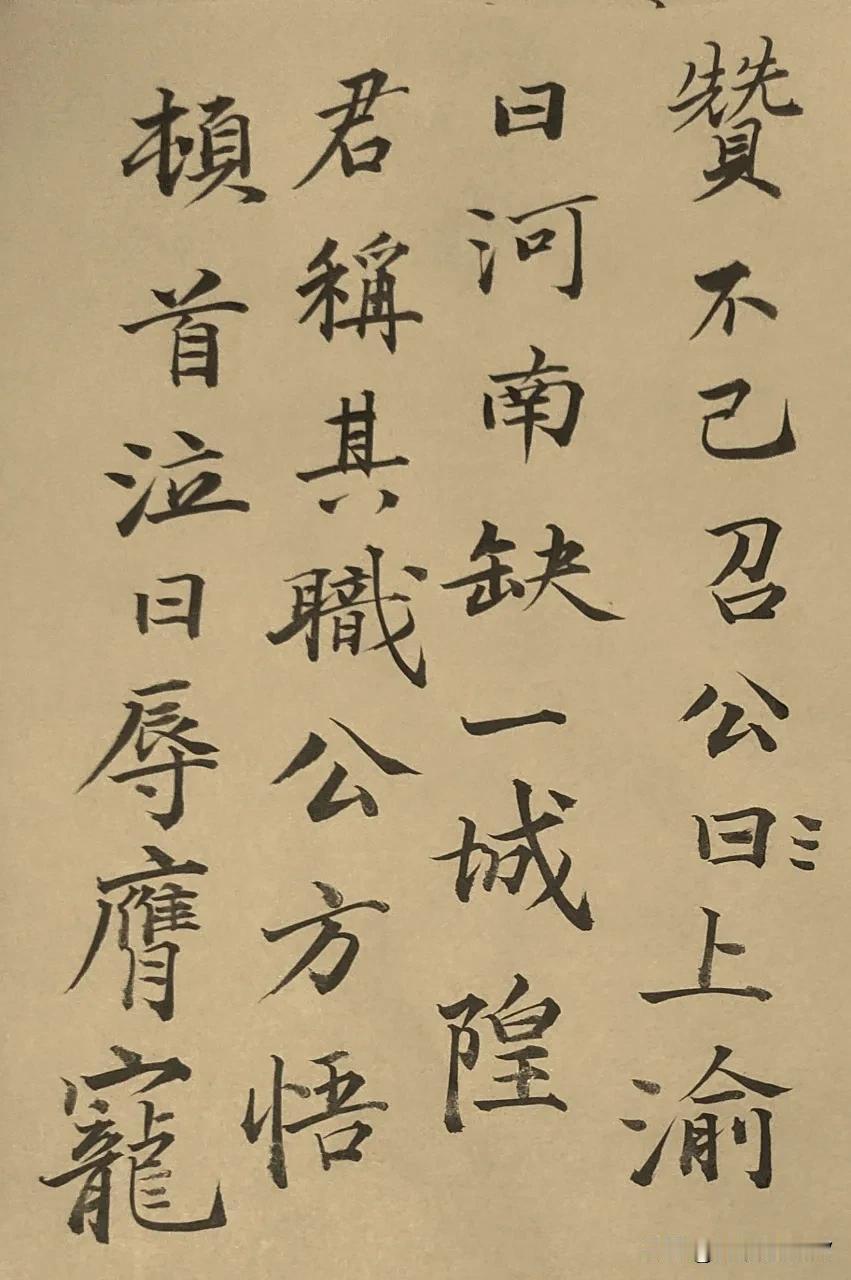 贊不已召公曰上渝
曰河南缺一城隍
君稱其職公方悟
頓首泣曰辱膺寵